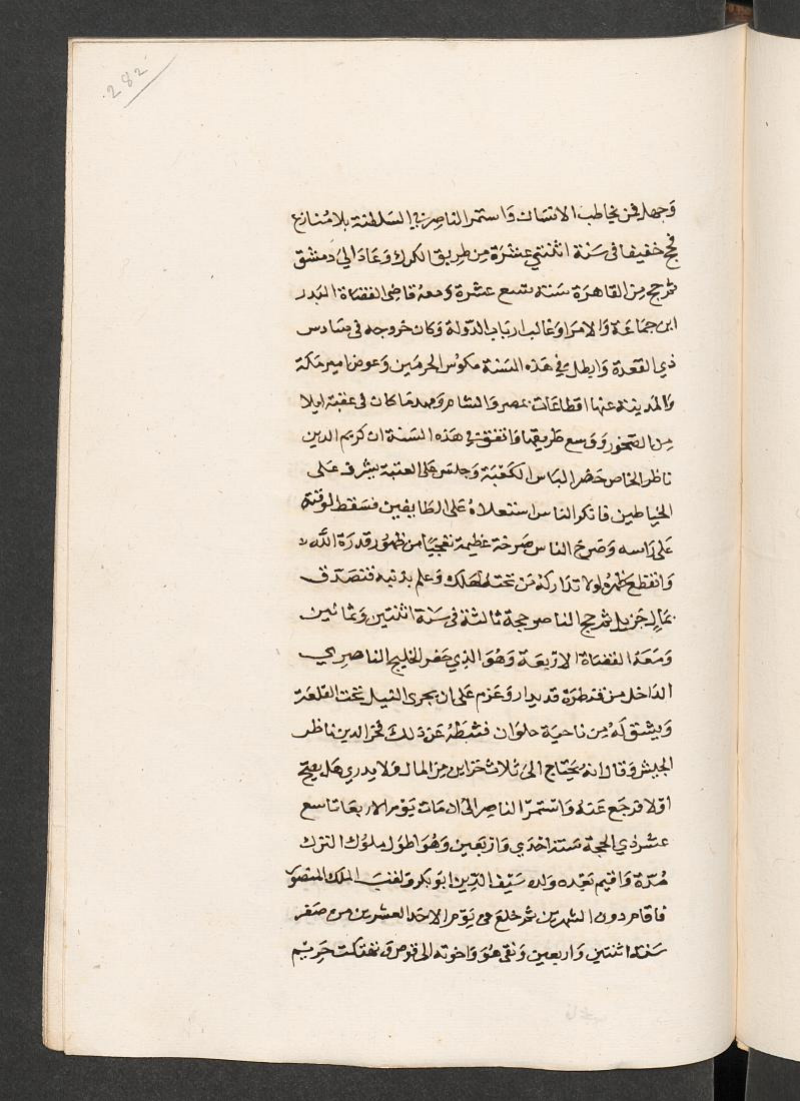 282
وجهل فمن يخاطب الانسان واستمر الناصر في السلطنة بلا منازع
فحج خفيفا في سنة اثنتي عشرة من طريق الكرك وعاد الي دمشق
ثم حج من القاهرة سنة تسع عشرة ومعه قاضي القضاة البدر
ابن جماعة والامرا وغالب ارباب الدولة وكان خروجه في سادس
ذي القعدة وابطل في هذه السنة مكوس الحرمين وعوض امير مكة
والمدينة عنها اقطاعات بمصر والشام ومهد ما كان في عقبة ايلا
من الصخور ووسع طريقها فاتفق في هذه السنة ان كريم الدين
ناظر الخاص حضر الباس الكعبة وجلس على العتبة يشرف على
الخياطين فانكر الناس استعلاه على الطايفين فسقط لوقته
على راسه وصرخ الناس صرخة عظيمة تعجبا من ظهور قدرة الله
وانقطع ظهره ولولا تداركه من تحته لهلك وعلم بذنبه فتصدق
بمال جزيل ثم حج الناصر حجة ثالثة في سنة اثنتين وثمانين
ومعه القضاة الاربعة وهو الذي حفر الخليج الناصري
الداخل من قنطرة قديدار وعزم على ان يجرى النيل تحت القلعة
ويشق له من ناحية حلوان فثبطه عن ذلك فخر الدين ناظر
الجيش وقال انه يحتاج الى ثلاث خزاين من المال ولا يدري هل يصح
اولا فرجع عنه واستمر الناصر الى ان مات يوم الاربعا تاسع
عشر ذي الحجة سنة احدي واربعين وهو اطول ملوك الترك
مدة واقيم بعده ولده سيف الدين ابو بكر ولقب الملك المنصور
فاقام دون الشهرين ثم خلع في يوم الاحد العشرين من صفر
سنة اثنتين واربعين ونفي هو واخوته الى قوص وتهتكت حريم